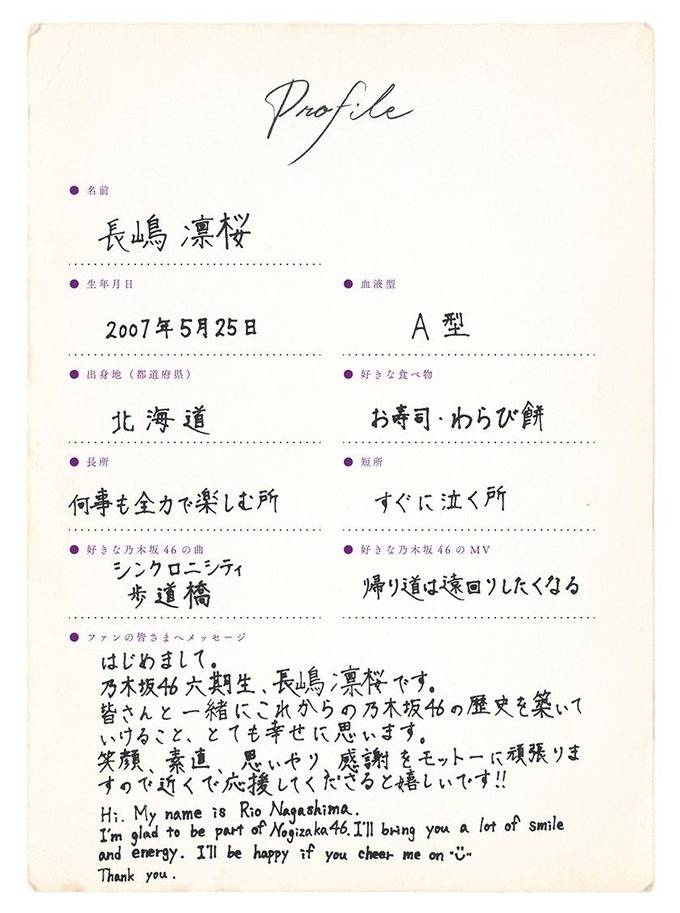 Profile
● 名前
長嶋 凛桜
● 生年月日
2007年5月25日
● 血液型
A 型
● 出身地（都道府県）
北海道
● 好きな食べ物
お寿司・わらび餅
● 長所
何事も全力で楽しむ所
● 短所
すぐに泣く所
● 好きな乃木坂46の曲
シンクロニシティ
歩道橋
● 好きな乃木坂46のMV
帰り道は遠回りしたくなる
● ファンの皆さまへメッセージ
はじめまして。
乃木坂46 六期生、長嶋凛桜です。
皆さんと一緒にこれからの乃木坂46の歴史を築いて
いけること、とても幸せに思います。
笑顔、素直、思いやり、感謝をモットーに頑張りま
すので近くで応援してくださると嬉しいです!!
Hi. My name is Rio Nagashima.
I'm glad to be part of Nogizaka46. I'll bring you a lot of smile
and energy. I'll be happy if you cheer me on
Thank you.